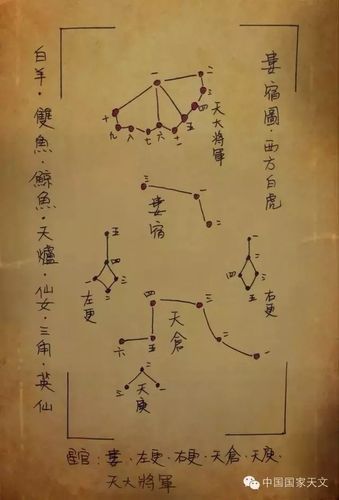 婁宿圖·西方白虎
一
二
三
四
五
六
七
八
九
十
十一
天大將軍
三
一
二
婁宿
五
四
三
一
二
左更
一
二
四
三
五
右更
四
三
二
一
五
六
天倉
二
一
三
天庾
白羊·雙魚·鯨魚·天爐·仙女·三角·英仙
星官:婁·左更·右更·天倉·天庾·
天大將軍
中国国家天文